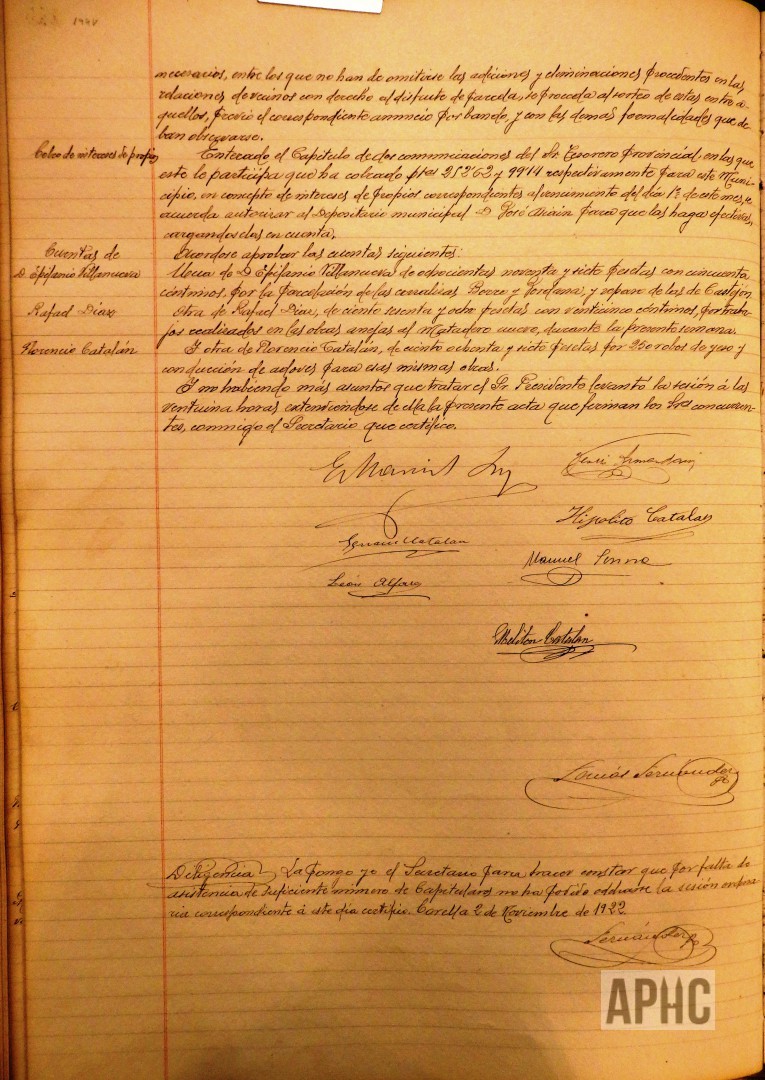 necesarios, entre los que no han de omitirse las adiciones y eliminaciones procedentes en las
relaciones de vecinos con derecho al disfrute de parcela, se proceda al sorteo de estas entre a-
quellos, previo el correspondiente anuncio por bando, y con las demás formalidades que de-
ban observarse.
Cobro de intereses de propios
Enterado el Capitulo de dos comunicaciones del Sr. Tesorero Provincial, en las que
este le participa que ha cobrado ptas 252'62 y 99'14 respectivamente para este Muni-
cipio, en concepto de intereses de propios correspondientes al vencimiento del día 1º de este mes, se
acuerda autorizar al Depositario municipal D. José para que las haga efectivas,
cargandoselas en cuenta.
Cuentas de
Acordose aprobar las cuentas siguientes:
D. Epifanio Villanueva
Una de D. Epifanio Villanueva de ochocientas noventa y siete pesetas con cincuenta
céntimos, por la parcelación de las corralizas y y repaso de las de Castejón.
Rafael Díaz
Otra de Rafael Díaz, de ciento sesenta y ocho pesetas con veinticinco céntimos, por traba-
jos realizados en las obras anejas al Matadero nuevo, durante la presente semana.
Florencio Catalán
Y otra de Florencio Catalán, de ciento ochenta y siete pesetas por 250 robos de yeso y
conducción de adoves para esas mismas obras.
Y no habiendo más asuntos que tratar el Sr. Presidente levantó la sesión á las
veintiuna horas extendiéndose de ella la presente acta que firman los Sres concurren-
tes, conmigo el Secretario que certifico.
Hipolito Catalan
Catalan
Manuel
León Alfaro
Meliton Catalán
Tomás Fernández
Diligencia La pongo yo el Secretario para hacer constar que por falta de
asistencia de suficiente número de Capitulares no ha podido celebrarse la sesión ordina-
ria correspondiente á este día certifico. Corella 2 de Noviembre de 1922
Fernández
APHC